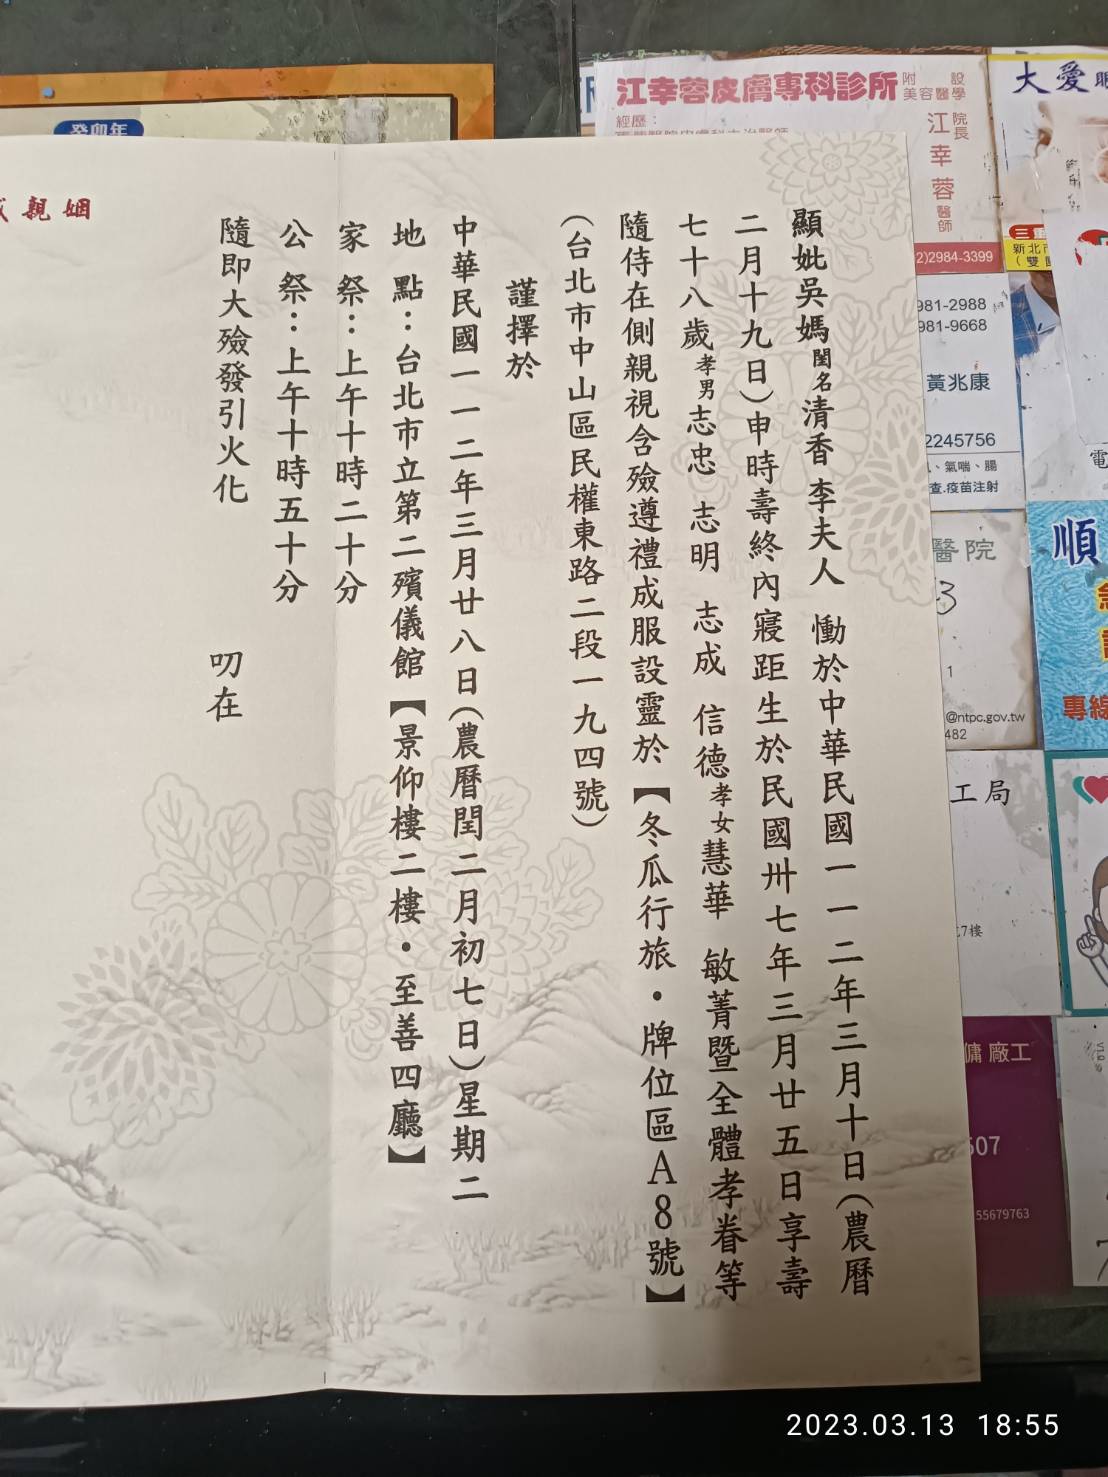 顯妣吳媽閨名清香 李夫人 慟於中華民國一一二年三月十日(農曆
二月十九日)申時壽終內寢距生於民國卅七年三月廿五日享壽
七十八歲孝男志忠 志明 志成 信德孝女慧華 敏菁暨全體孝眷等
隨侍在側親視含殮遵禮成服設靈於【冬瓜行旅・牌位區A8號】
(台北市中山區民權東路二段一九四號)
謹擇於
中華民國一一二年三月廿八日(農曆閏二月初七日)星期二
地 點:台北市立第二殯儀館【景仰樓二樓・至善四廳】
家 祭:上午十時二十分
公 祭:上午十時五十分
隨即大殮發引火化
叨在
姻親
癸卯年
江幸蓉皮膚專科診所
附設
美容醫學
經歷:
院長
江幸蓉醫師
2)2984-3399
大愛
新北市
981-2988
981-9668
黃兆康
2245756
、氣喘、腸
查.疫苗注射
電
醫院
3
1
@ntpc.gov.tw
482
順
專線
工局
7樓
傭 廠工
507
55679763
2023.03.13 18:55